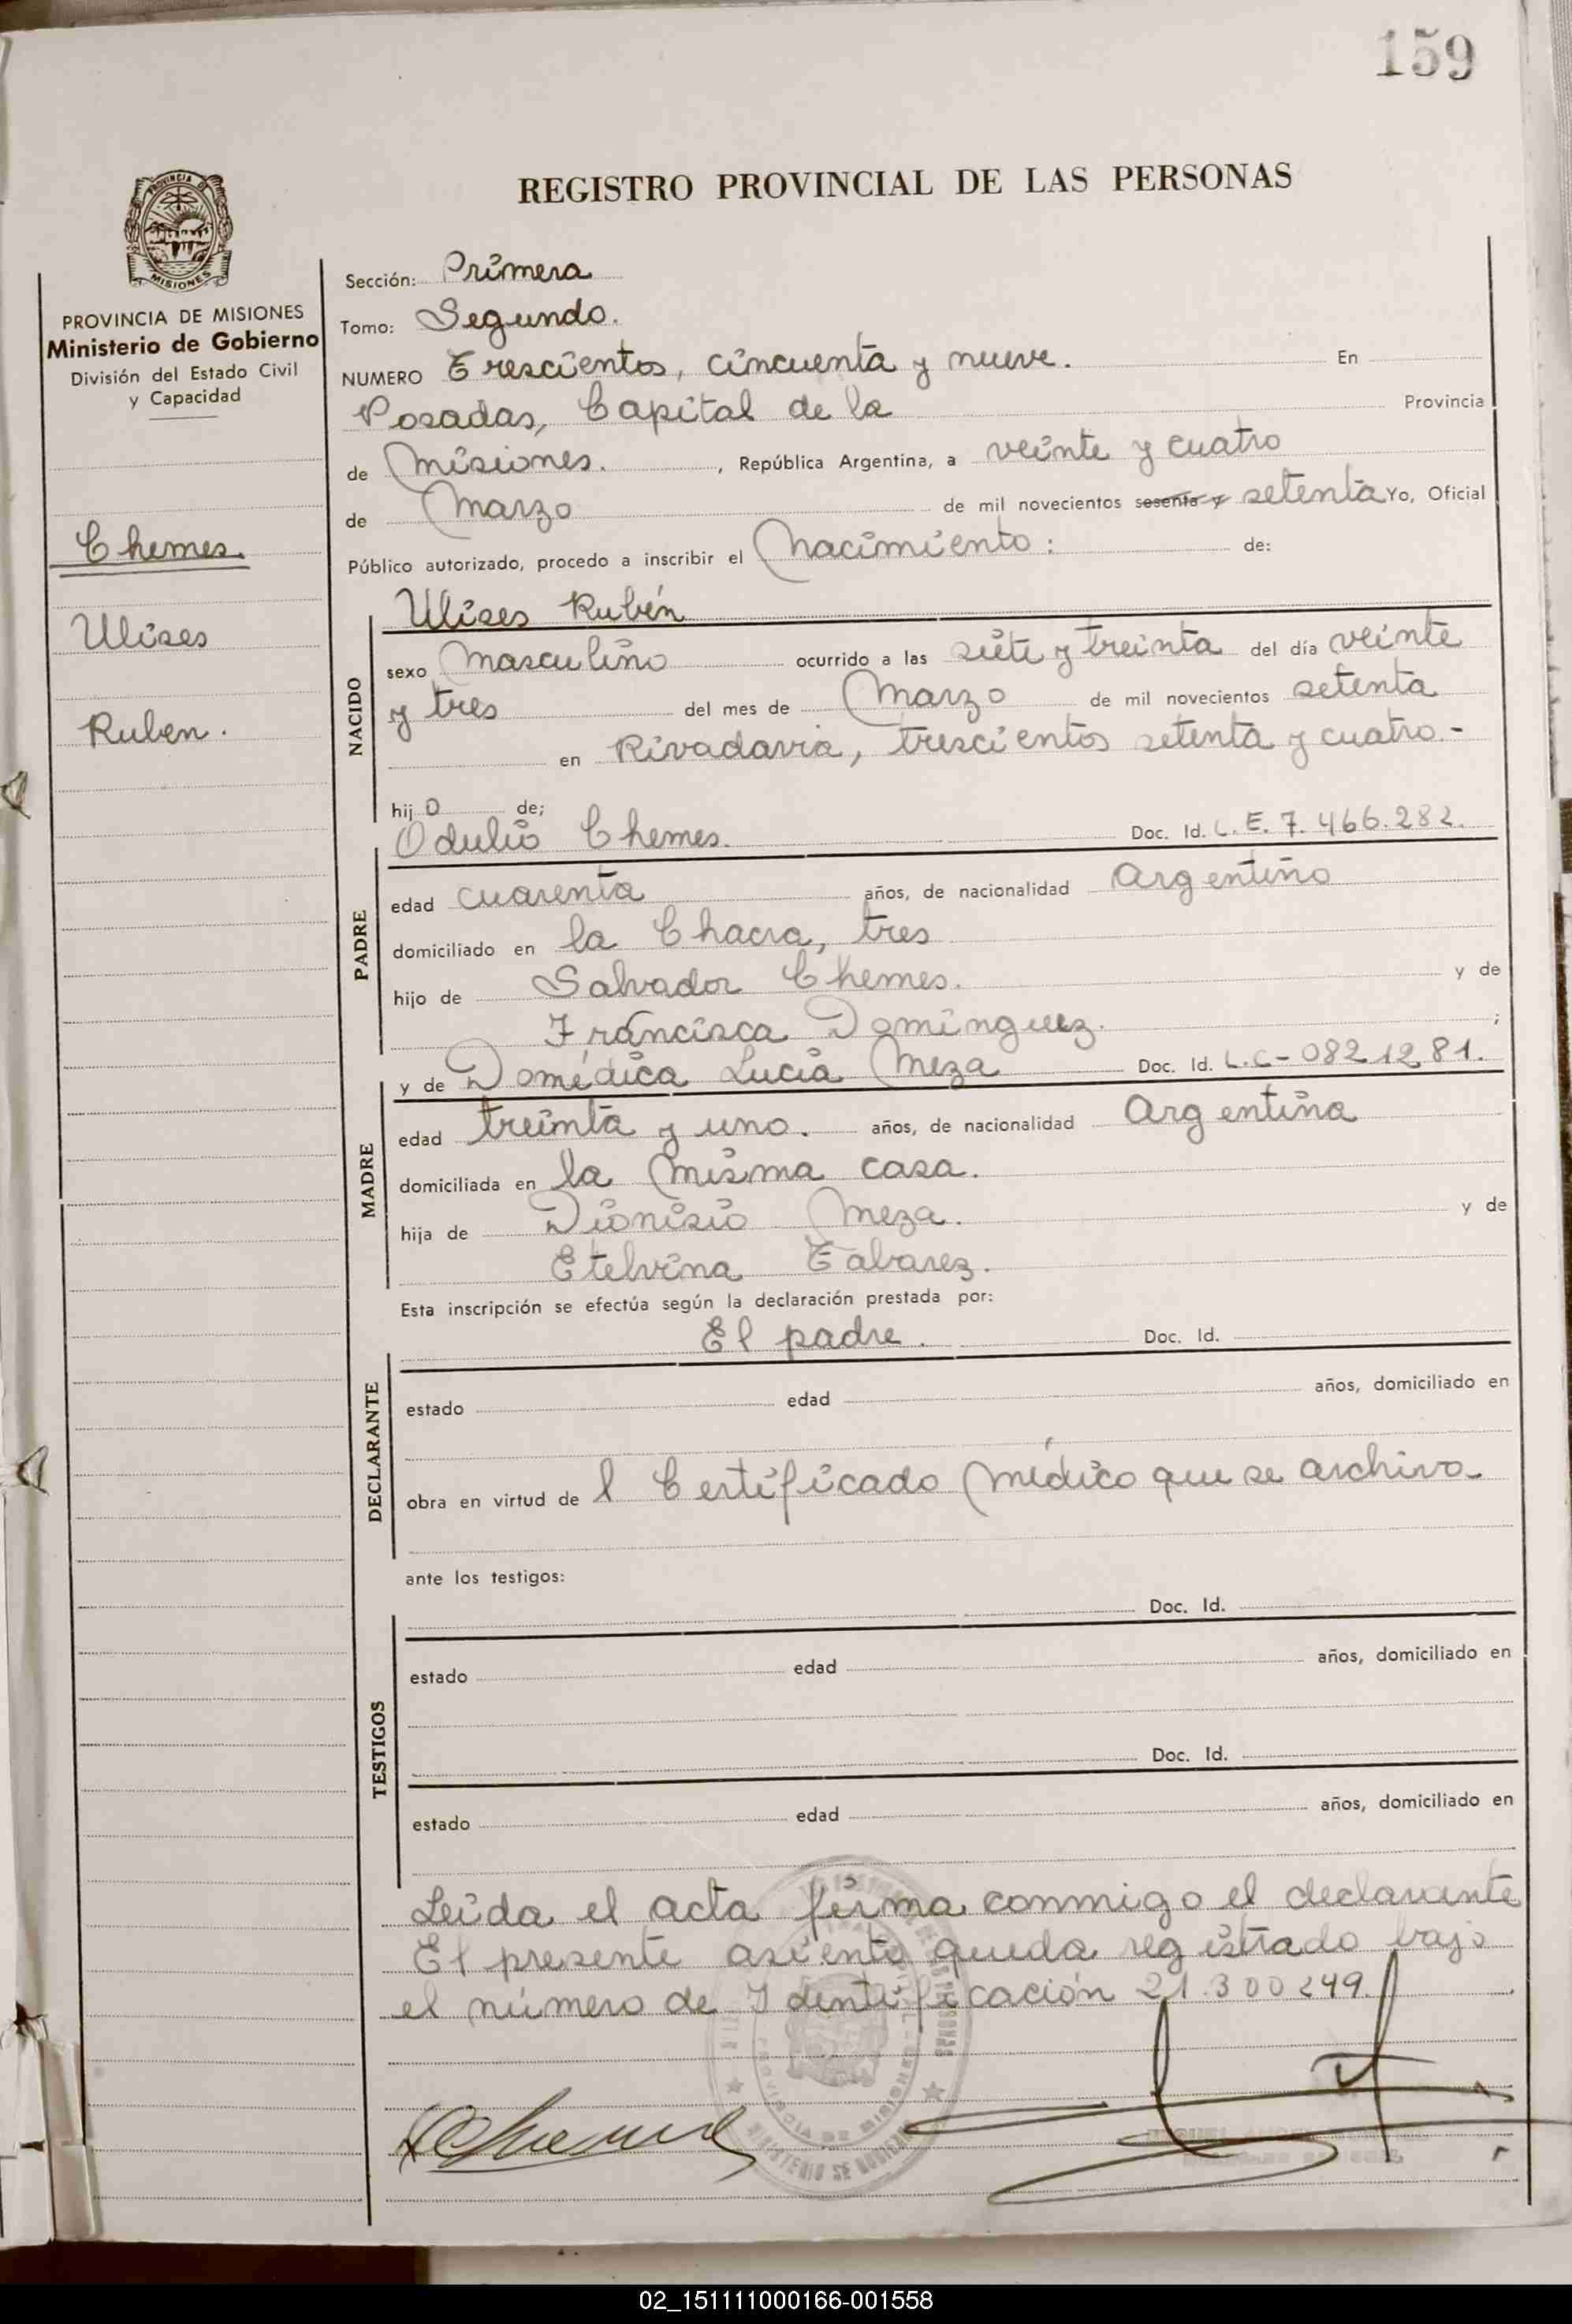 159
REGISTRO PROVINCIAL DE LAS PERSONAS
PROVINCIA DE MISIONES
Ministerio de Gobierno
División del Estado Civil
y Capacidad
Chemes.
Ulises
Ruben.
Sección: Primera
Tomo: Segundo.
NUMERO Trescientos, cincuenta y nueve. En
Posadas, Capital de la Provincia
de Misiones. , República Argentina, a veinte y cuatro
de Marzo de mil novecientos sesenta y setenta Yo, Oficial
Público autorizado, procedo a inscribir el Nacimiento: de:
Ulises Rubén
NACIDO
sexo Masculino ocurrido a las siete y treinta del día veinte
y tres del mes de Marzo de mil novecientos setenta
en Rivadavia, trescientos setenta y cuatro.-
hij o de;
Odulio Chemes. Doc. Id. L.E. 7.466.282.
PADRE
edad cuarenta años, de nacionalidad Argentino
domiciliado en la Chacra, tres
hijo de Salvador Chemes. y de
Francisca Dominguez. ;
y de Domédica Lucia Meza Doc. Id. L.C-0821281.
MADRE
edad treinta y uno. años, de nacionalidad Argentina
domiciliada en la misma casa.
hija de Dionisio Meza. y de
Etelvina Tabarez.
Esta inscripción se efectúa según la declaración prestada por:
El padre. Doc. Id.
DECLARANTE
estado edad años, domiciliado en
obra en virtud de l Certificado Médico que se archiva
ante los testigos:
Doc. Id.
TESTIGOS
estado edad años, domiciliado en
Doc. Id.
estado edad años, domiciliado en
Leida el acta firma conmigo el declarante
El presente asiento queda registrado bajo
el número de Identificación 21.300249.
02_151111000166-001558